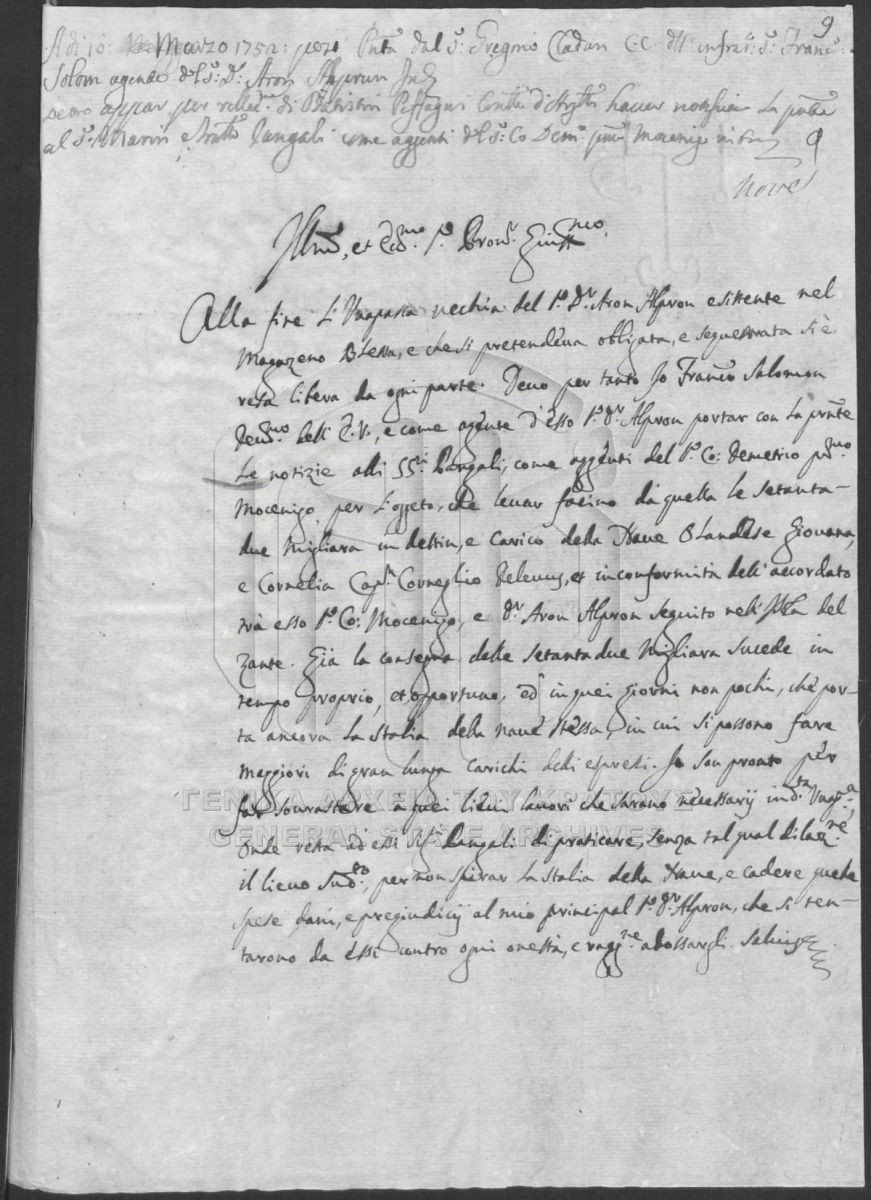 9
A di 10: Marzo 1752: per Pnta dal Sr: Gregorio Cladan C.C. dll' infras: Sr: Franc:
Solom agende del Sr: Dr: Aron
appar per relaz: di haver notificato la pnte
al Sr: Marin e come aggenti del Sr: Co Dem: Mocenigo
9
Nove
Illmo, et Ecc:mo Sr Prov:
Alla fine L'Uvapassa vecchia del Sr: Dr: Aron Alpron esistente nel
Magazeno Blessa, e che si pretendeva obligata, e sequestrata si è
resa libera da ogni parte. Devo per tanto Io Franco Salomon
dell' E.V., e come agente d'esso Sr: Dr: Alpron portar con la pnte
Le notizie alli SSri: Pangali, come aggenti del Sr: Co: Demetrio
Mocenigo, per L'oggeto, che levar facino da quella le setanta-
due Migliara in destin, e carico della Nave Olandese Giovana,
e Cornelia Capn: Corneglio et in conformità dell' accordato
trà esso Sr: Co: Mocenigo, e Dr: Aron Alpron seguito nell' Isola del
Zante. Gia la consegna delle setantadue Migliara sucede in
tempo proprio, et opportuno, ed in quei giorni non pochi, che por-
ta ancora La Stalia della nave stessa, in cui si possono fare
maggiori di gran lunga carichi delli espressi. Io son pronto per
far sourastare a quei lievi lavori che sarano necessarij in d:ta Uvap:a,
Onde resta ad essi Sig:ri Pangali di praticare, senza tal qual dilaz:ne
il lievo Sud:to, per non spirar La Stalia della Nave, e cadere quelle
spese dani, e pregiudicij al mio principal Sr: Dr: Alpron, che si ten-
tarono da essi contro ogni onestà, e ragg:ne adossargli. Salvis
ΓΕΝΙΚΑ ΑΡΧΕΙΑ ΤΟΥ ΚΡΑΤΟΥΣ
GENERAL STATE ARCHIVES